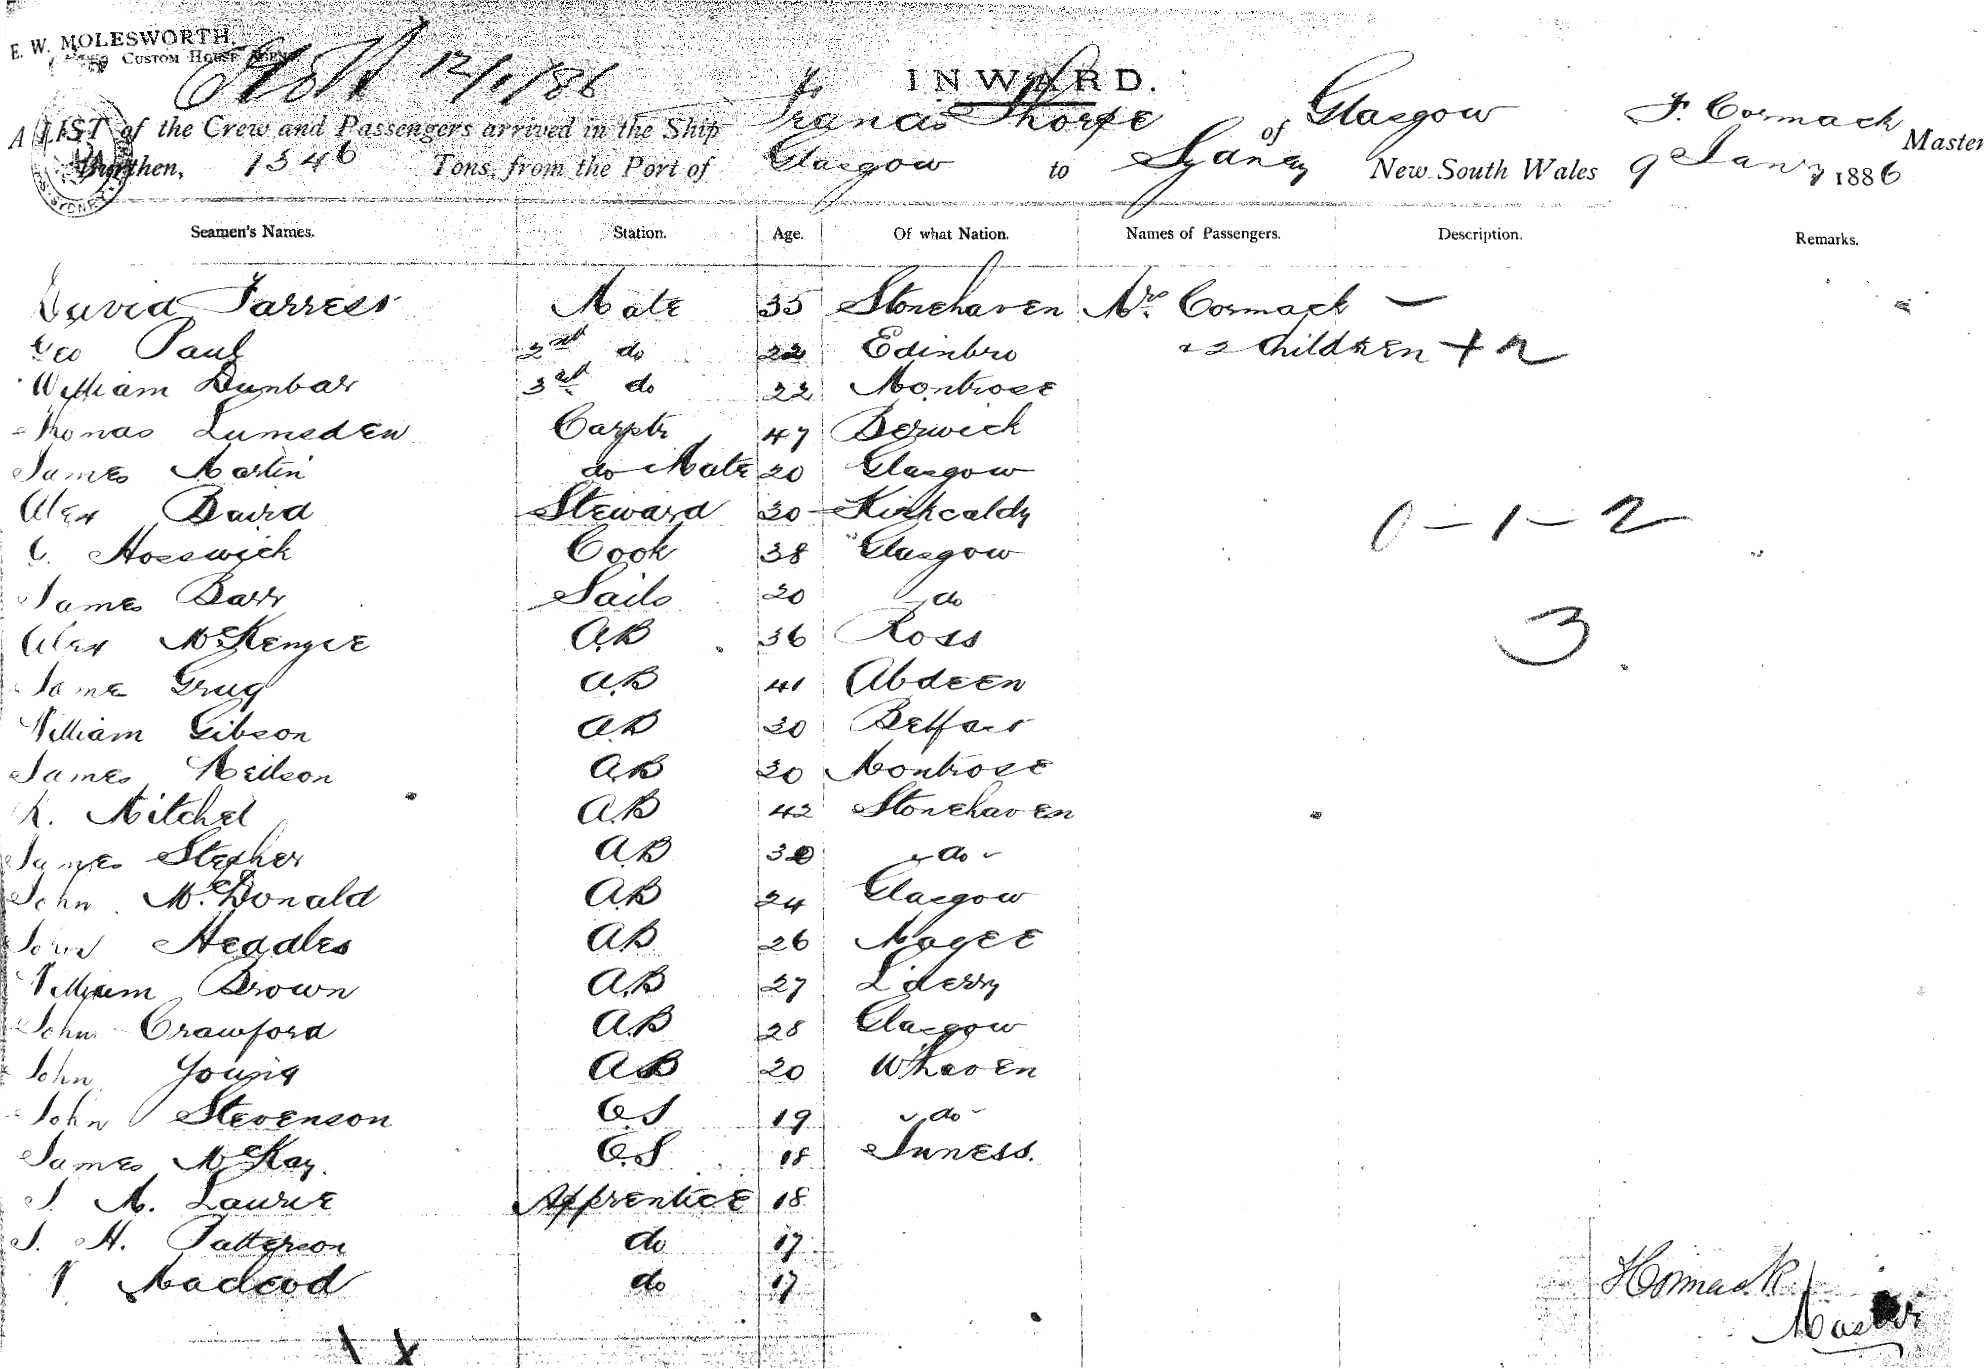 E. W. MOLESWORTH,
CUSTOM HOUSE AGENT
12/1/86
INWARD.
A LIST of the Crew and Passengers arrived in the Ship Francis Thorpe of Glasgow F. Cormack Master
Burthen, 1346 Tons, from the Port of Glasgow to Sydney New South Wales 9 Jany 1886
SYDNEY
Seamen's Names. Station. Age. Of what Nation. Names of Passengers. Description. Remarks.
David Farress Mate 35 Stonehaven Mrs Cormack —
Geo Paul 2nd do 22 Edinbro + 2 Children + 2
William Dunbar 3rd do 22 Montrose
Thomas Lumsden Carptr 47 Berwick
James Martin do Mate 20 Glasgow
Alex Baird Steward 30 Kirkcaldy
0 - 1 - 2
C. Hosswick Cook 38 Glasgow
James Barr Sails 20 do
3
Alex McKenzie A.B 36 Ross
Jame Grug A.B 41 Abdeen
William Gibson A.B 30 Belfast
James Neilson A.B 30 Montrose
R. Mitchel A.B 42 Stonehaven
James Stepher A.B 30 do
John McDonald A.B 24 Glasgow
John Heddles A.B 26 Magee
William Brown A.B 27 L'derry
John Crawford A.B 28 Glasgow
John Young A.B 20 W'haven
John Stevenson O.S 19 do
James McKay. O.S 18 Inness.
J. M. Laurie Apprentice 18
J. H. Patterson do 17
Macleod do 17
F Cormack
Master